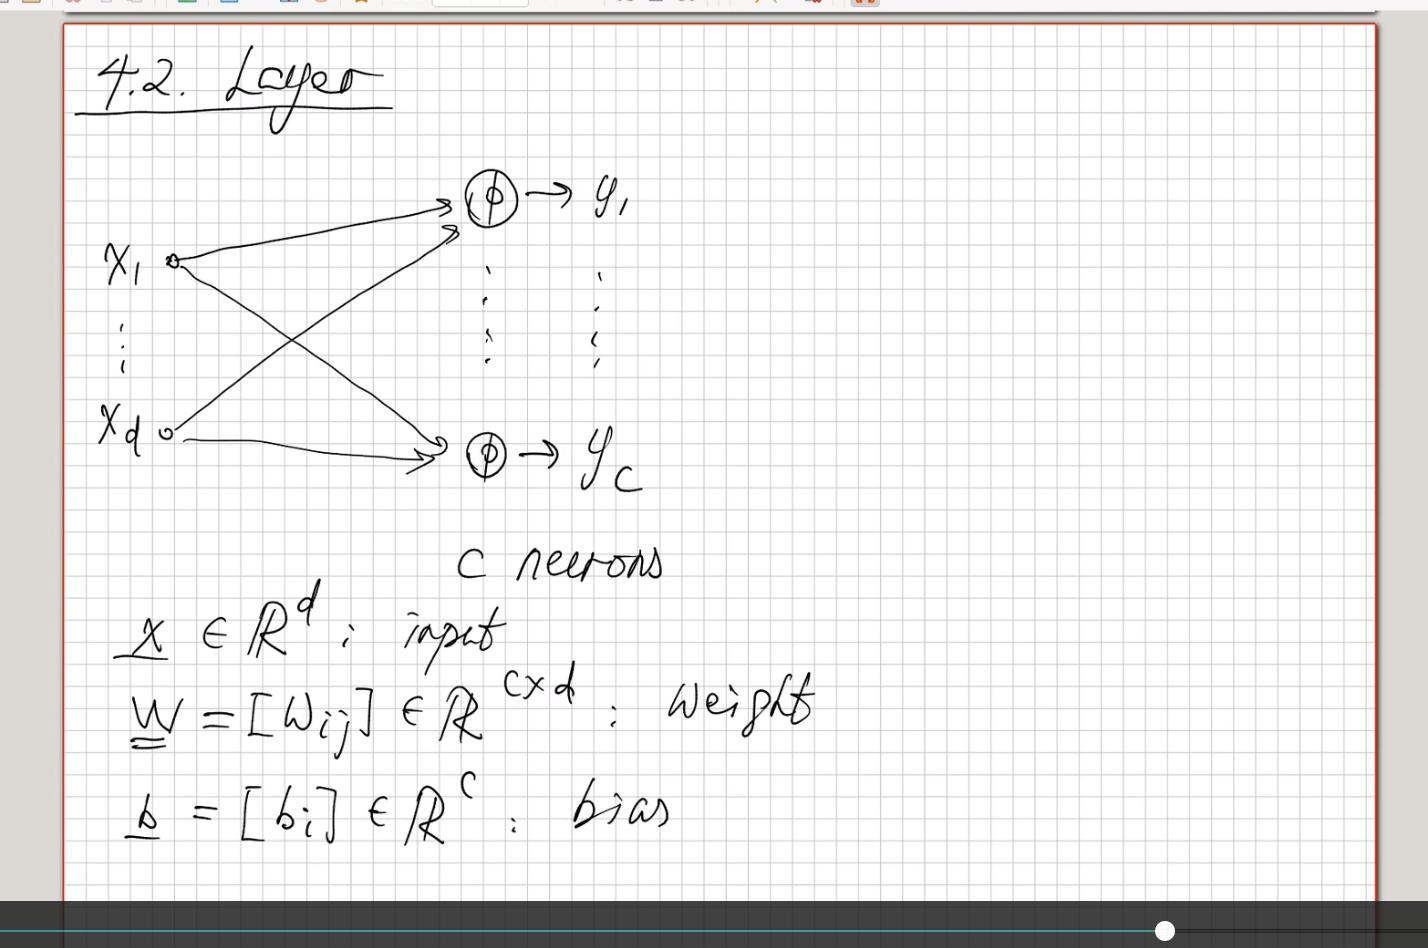 4.2. Layer
ϕ → y₁
x₁
x_d
ϕ → y_c
C neurons
x ∈ ℝᵈ : input
W = [wᵢⱼ] ∈ ℝ^{c×d} : weight
b = [bᵢ] ∈ ℝ^c : bias